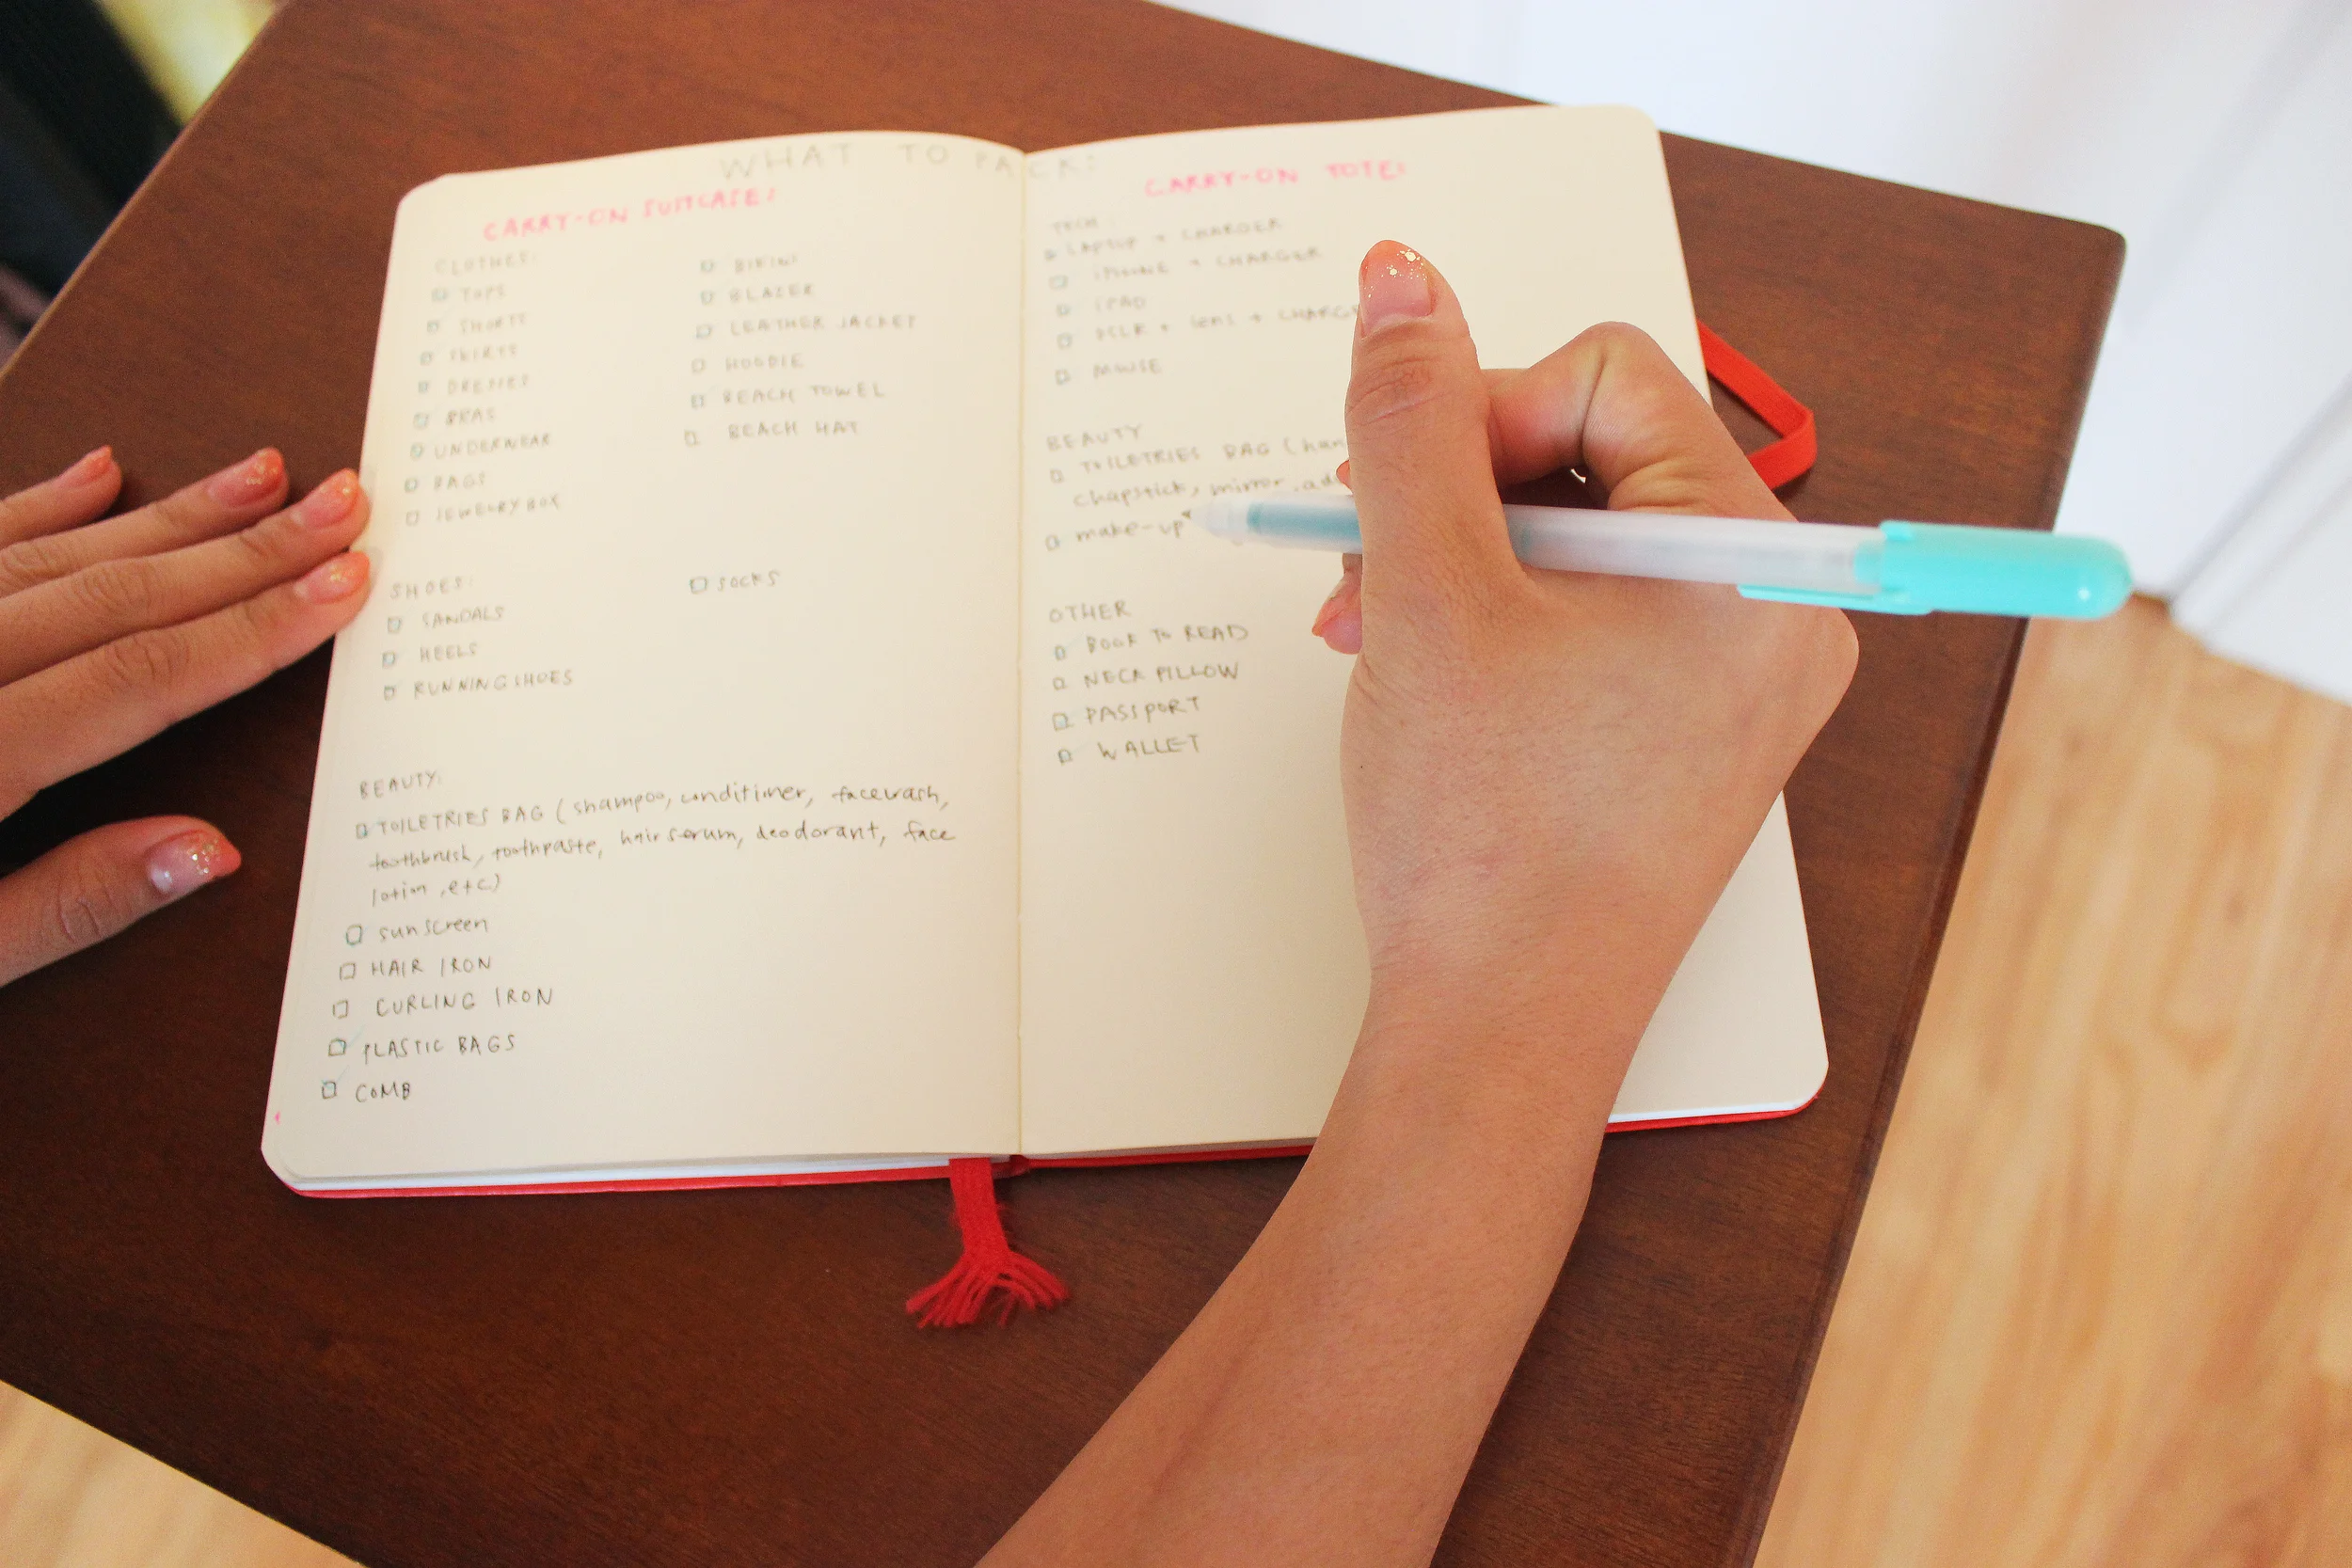 WHAT TO PACK:
CARRY-ON SUITCASE:
CLOTHES:
TOPS
SHORTS
SKIRTS
DRESSES
BRAS
UNDERWEAR
BAGS
JEWELRY BOX
BIKINI
BLAZER
LEATHER JACKET
HOODIE
BEACH TOWEL
BEACH HAT
SHOES:
SANDALS
HEELS
RUNNING SHOES
SOCKS
BEAUTY:
TOILETRIES BAG (shampoo, conditioner, facewash,
toothbrush, toothpaste, hair serum, deodorant, face
lotion, etc)
sunscreen
HAIR IRON
CURLING IRON
PLASTIC BAGS
COMB
CARRY-ON TOTE:
TECH:
LAPTOP + CHARGER
iPHONE + CHARGER
iPAD
DSLR + lens + CHARG
MOUSE
BEAUTY
TOILETRIES BAG (han
chapstick, mirror, ad
make-up
OTHER
BOOK TO READ
NECK PILLOW
PASSPORT
WALLET